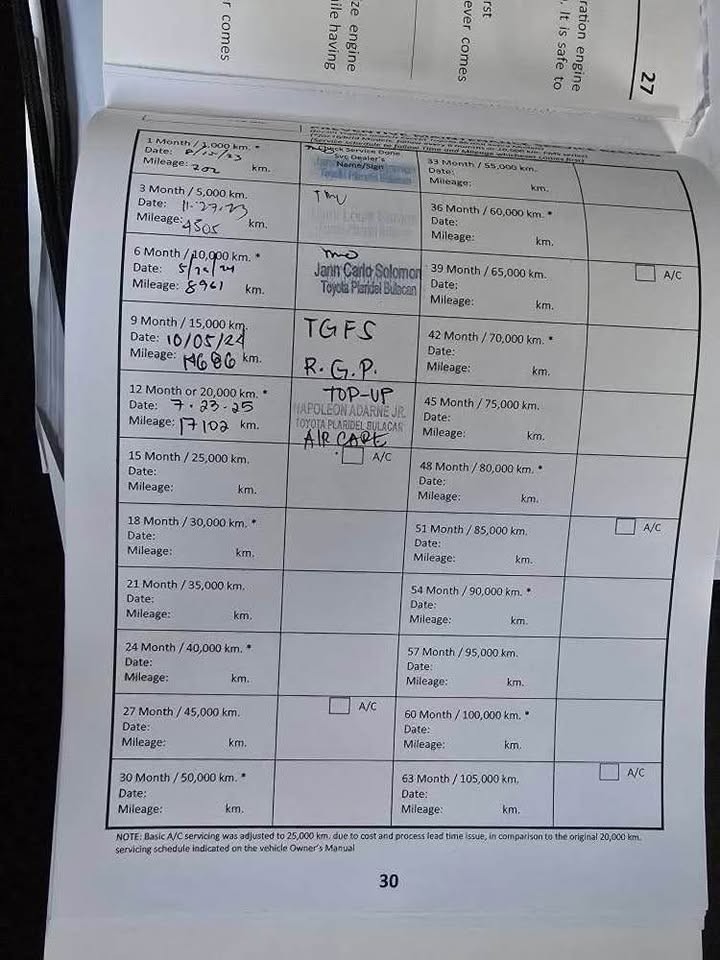 27
ration engine
. It is safe to
rst
ever comes
ze engine
ile having
r comes
1 Month / 1,000 km. *
Date:
Mileage: 702 km.
Svc Dealer's
Name/Sign
3 Month / 5,000 km.
Date: 11-27-23
Mileage: 4505 km.
6 Month / 10,000 km. *
Date:
Mileage: 8961 km.
Jann Carlo Solomon
Toyota Plaridel Bulacan
9 Month / 15,000 km.
Date: 10/05/24
Mileage: 14686 km.
TGFS
R.G.P.
12 Month or 20,000 km. *
Date: 7-23-25
Mileage: 17102 km.
TOP-UP
NAPOLEON ADARNE JR.
TOYOTA PLARIDEL BULACAN
AIR CARE
15 Month / 25,000 km.
Date:
Mileage: km.
A/C
18 Month / 30,000 km. *
Date:
Mileage: km.
21 Month / 35,000 km.
Date:
Mileage: km.
24 Month / 40,000 km. *
Date:
Mileage: km.
27 Month / 45,000 km.
Date:
Mileage: km.
A/C
30 Month / 50,000 km. *
Date:
Mileage: km.
33 Month / 55,000 km.
Date:
Mileage: km.
36 Month / 60,000 km. *
Date:
Mileage: km.
39 Month / 65,000 km.
Date:
Mileage: km.
A/C
42 Month / 70,000 km. *
Date:
Mileage: km.
45 Month / 75,000 km.
Date:
Mileage: km.
48 Month / 80,000 km. *
Date:
Mileage: km.
51 Month / 85,000 km.
Date:
Mileage: km.
A/C
54 Month / 90,000 km. *
Date:
Mileage: km.
57 Month / 95,000 km.
Date:
Mileage: km.
60 Month / 100,000 km. *
Date:
Mileage: km.
63 Month / 105,000 km.
Date:
Mileage: km.
A/C
NOTE: Basic A/C servicing was adjusted to 25,000 km. due to cost and process lead time issue, in comparison to the original 20,000 km.
servicing schedule indicated on the vehicle Owner's Manual
30